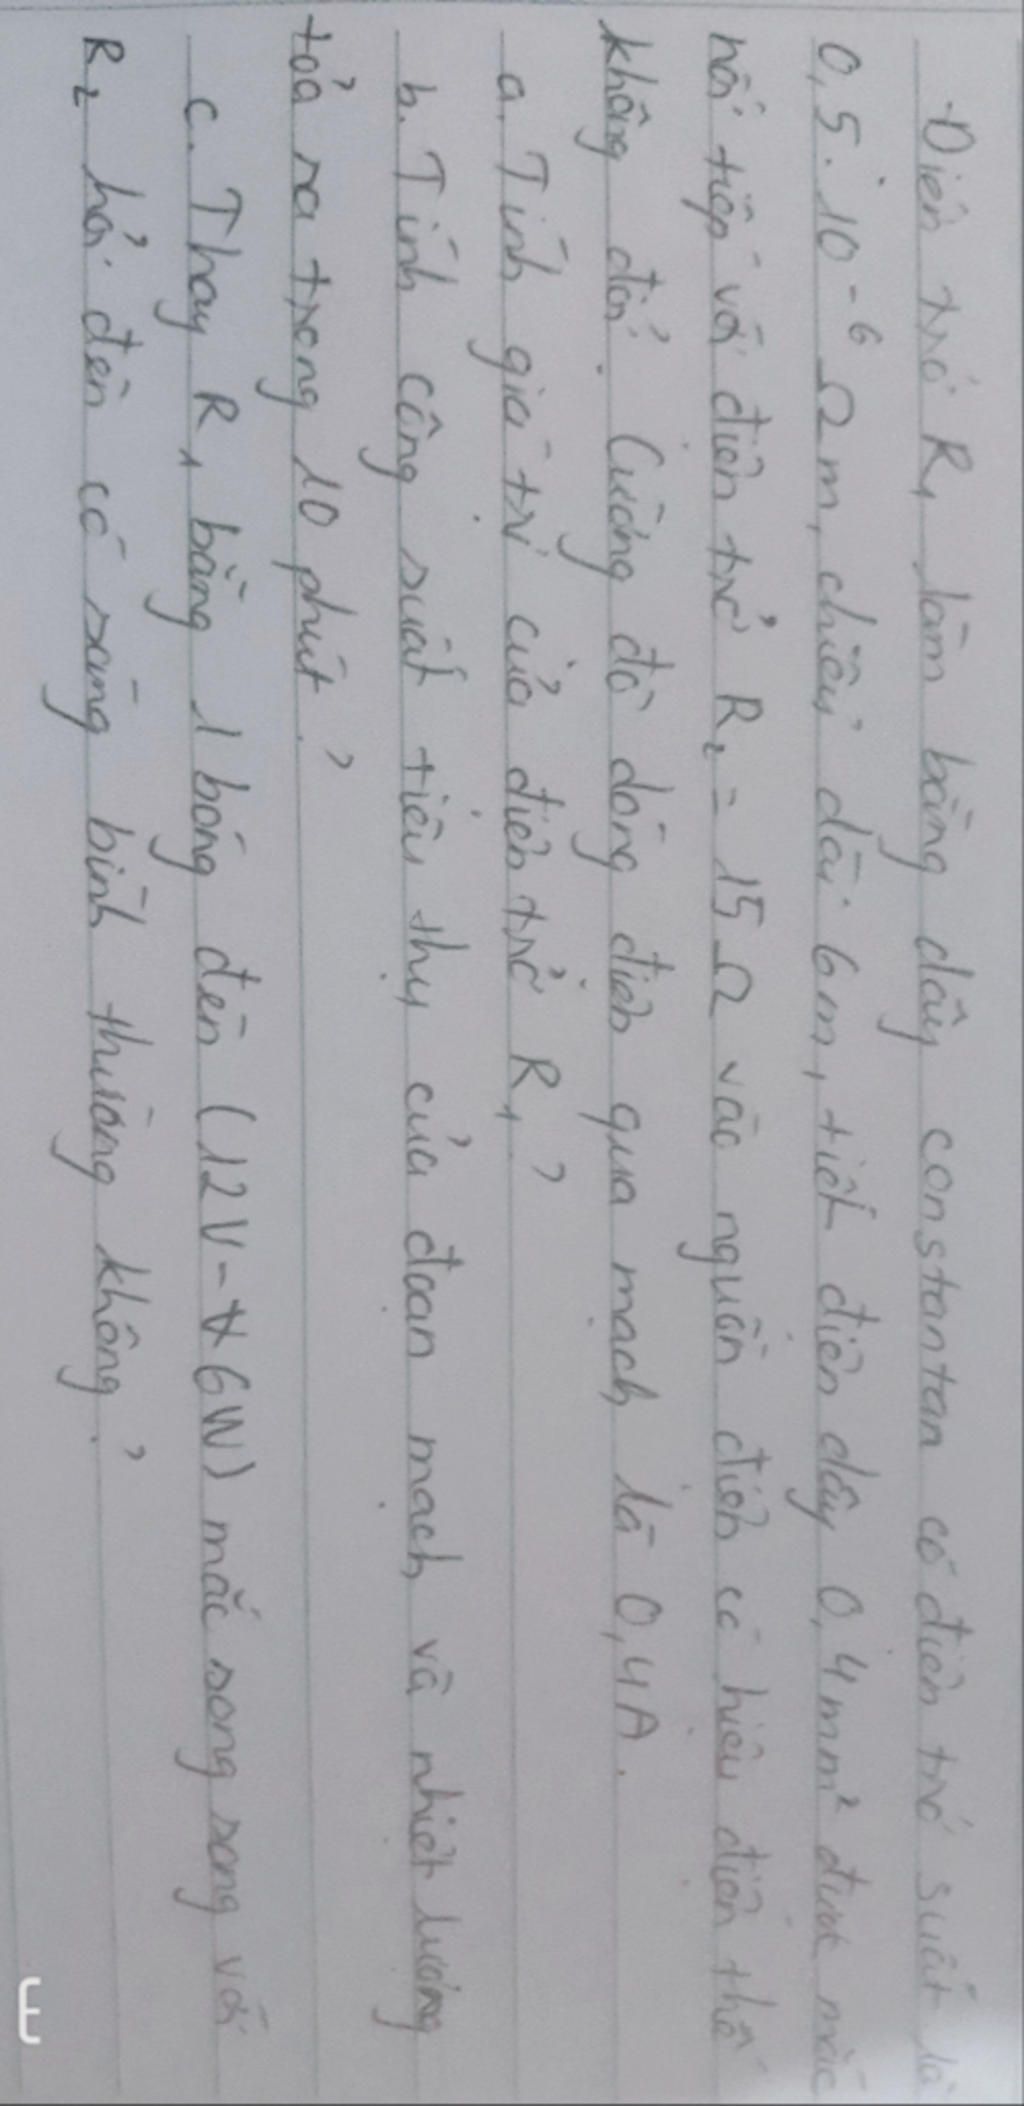 Điện trở R₁ làm bằng dây constantan có điện trở suất là
0,5.10⁻⁶ Ωm, chiều dài 6m, tiết diện dây 0,4mm² được mắc
nối tiếp với điện trở R₂ = 15Ω vào nguồn điện có hiệu điện thế
không đổi. Cường độ dòng điện qua mạch là 0,4A.
a. Tính giá trị của điện trở R₁?
b. Tính công suất tiêu thụ của đoạn mạch và nhiệt lượng
toả ra trong 10 phút?
c. Thay R₁ bằng 1 bóng đèn (12V-6W) mắc song song với
R₂ hỏi đèn có sáng bình thường không?